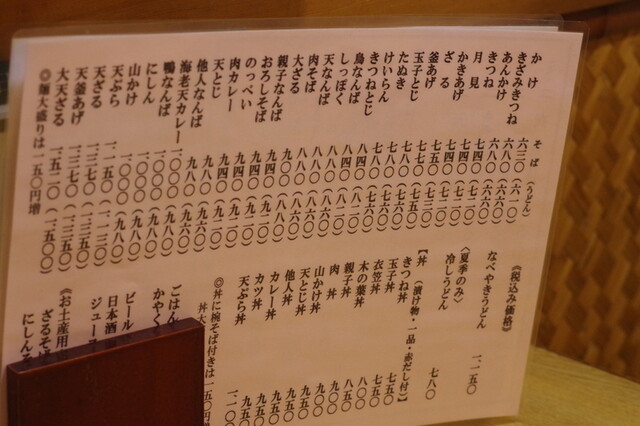 かけ 六三〇 (六一〇)
そば (うどん)
きざみきつね 六八〇 (六六〇)
あんかけ 六八〇 (六六〇)
きつね 六八〇 (六六〇)
月見 七四〇 (七二〇)
かきあげ 七四〇 (七二〇)
ざる 七四〇 (七二〇)
釜あげ 七五〇 (七三〇)
玉子とじ
たぬき
けいらん 七八〇 (七六〇)
きつねとじ 七八〇 (七六〇)
鳥なんば 八四〇 (八二〇)
しっぽく 八四〇 (八二〇)
天なんば 八八〇 (八六〇)
肉そば 八八〇 (八六〇)
大ざる
親子なんば
おろしそば 九四〇 (九二〇)
のっぺい 九四〇 (九二〇)
肉カレー 九四〇 (九二〇)
天とじ
他人なんば 九八〇 (九六〇)
海老天カレー 一〇〇〇 (九八〇)
鴨なんば 一〇〇〇 (九八〇)
にしん 一〇〇〇 (九八〇)
山かけ 一〇〇〇 (九八〇)
天ぷら 一一五〇 (一一三〇)
天ざる 一三七〇 (一三五〇)
天釜あげ 一三七〇 (一三五〇)
大天ざる 一五二〇 (一五〇〇)
◎麺大盛りは一五〇円増
《税込み価格》
なべやきうどん 一、一五〇
〈夏季のみ〉
冷しうどん 七八〇
【丼 〈漬け物・一品・赤だし付〉】
きつね丼 七五〇
玉子丼 七五〇
衣笠丼 七五〇
木の葉丼 八〇〇
親子丼 八五〇
肉丼 九〇〇
山かけ丼 九〇〇
天とじ丼 九五〇
他人丼 九五〇
カレー丼 九五〇
カツ丼 九五〇
天ぷら丼 一、一〇〇
◎丼に椀そば付きは一五〇円増
丼大
ごはん
かやく
ビール
日本酒
ジュース
《お土産用
ざるそ
にしん